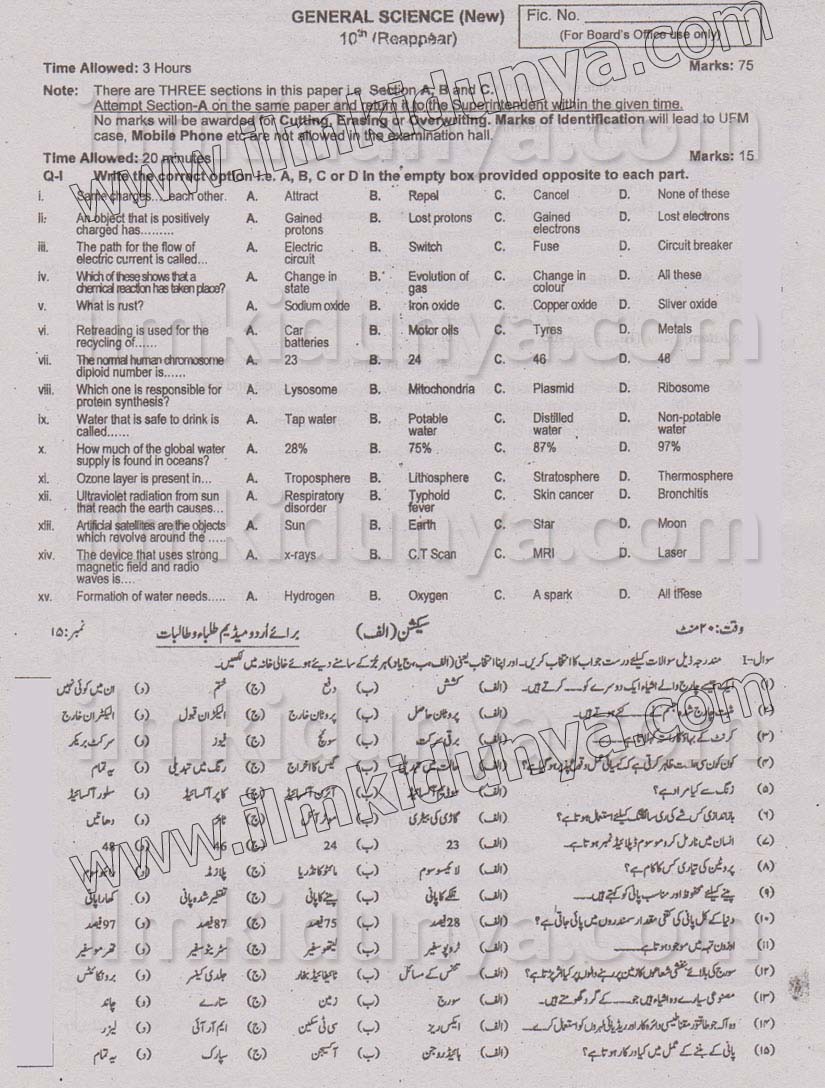 GENERAL SCIENCE (New)
10th (Reappear)
Fic. No.
(For Board's Office use only)
Time Allowed: 3 Hours Marks: 75
Note: There are THREE sections in this paper i.e Section A, B and C.
Attempt Section-A on the same paper and return it to the Superintendent within the given time.
No marks will be awarded for Cutting, Erasing or Overwriting. Marks of Identification will lead to UFM
case, Mobile Phone etc are not allowed in the examination hall.
Time Allowed: 20 minutes Marks: 15
Q-I Write the correct option i.e. A, B, C or D in the empty box provided opposite to each part.
i. Same charges.....each other. A. Attract B. Repel C. Cancel D. None of these
ii. An object that is positively charged has......... A. Gained protons B. Lost protons C. Gained electrons D. Lost electrons
iii. The path for the flow of electric current is called... A. Electric circuit B. Switch C. Fuse D. Circuit breaker
iv. Which of these shows that a chemical reaction has taken place? A. Change in state B. Evolution of gas C. Change in colour D. All these
v. What is rust? A. Sodium oxide B. Iron oxide C. Copper oxide D. Silver oxide
vi. Retreading is used for the recycling of...... A. Car batteries B. Motor oils C. Tyres D. Metals
vii. The normal human chromosome diploid number is...... A. 23 B. 24 C. 46 D. 48
viii. Which one is responsible for protein synthesis? A. Lysosome B. Mitochondria C. Plasmid D. Ribosome
ix. Water that is safe to drink is called...... A. Tap water B. Potable water C. Distilled water D. Non-potable water
x. How much of the global water supply is found in oceans? A. 28% B. 75% C. 87% D. 97%
xi. Ozone layer is present in... A. Troposphere B. Lithosphere C. Stratosphere D. Thermosphere
xii. Ultraviolet radiation from sun that reach the earth causes... A. Respiratory disorder B. Typhoid fever C. Skin cancer D. Bronchitis
xiii. Artificial satellites are the objects which revolve around the ..... A. Sun B. Earth C. Star D. Moon
xiv. The device that uses strong magnetic field and radio waves is.... A. x-rays B. C.T Scan C. MRI D. Laser
xv. Formation of water needs..... A. Hydrogen B. Oxygen C. A spark D. All these
وقت: ۲۰ منٹ سیکشن (الف) برائے اُردو میڈیم طلباء و طالبات نمبر: ۱۵
سوال-I مندرجہ ذیل سوالات کیلئے درست جواب کا انتخاب کریں۔ اور اپنا انتخاب یعنی (الف، ب، ج یا د) ہر جز کے سامنے دیئے ہوئے خالی خانہ میں لکھیں۔
(۱) ایک جیسے چارج والے اشیاء ایک دوسرے کو ---- کرتے ہیں۔ (الف) کشش (ب) دفع (ج) ختم (د) ان میں کوئی نہیں
(۲) مثبت چارج شدہ جسم ہوتے ہیں۔ (الف) پروٹان حاصل (ب) پروٹان خارج (ج) الیکٹران قبول (د) الیکٹران خارج
(۳) کرنٹ کے بہاؤ کا راستہ کہلاتا ہے (الف) برقی سرکٹ (ب) سوئچ (ج) فیوز (د) سرکٹ بریکر
(۴) کون کون سی علامت ظاہر کرتی ہے کہ کیمیائی عمل وقوع پذیر ہو گیا ہے؟ (الف) حالت میں تبدیلی (ب) گیس کا اخراج (ج) رنگ میں تبدیلی (د) یہ تمام
(۵) زنگ سے کیا مراد ہے؟ (الف) سوڈیم آکسائیڈ (ب) آئرن آکسائیڈ (ج) کاپر آکسائیڈ (د) سلور آکسائیڈ
(۶) باز اندازی کس شے کی ری سائکلنگ کیلئے استعمال ہوتا ہے؟ (الف) گاڑی کی بیٹری (ب) موٹر آئل (ج) ٹائر (د) دھاتیں
(۷) انسان میں نارمل کروموسوم ڈپلائیڈ نمبر ہوتا ہے۔ (الف) 23 (ب) 24 (ج) 46 (د) 48
(۸) پروٹین کی تیاری کس کا کام ہے؟ (الف) لائیسوسوم (ب) مائٹوکانڈریا (ج) پلازمڈ (د) رائبوسوم
(۹) پینے کیلئے محفوظ اور مناسب پانی کو کہتے ہیں۔ (الف) نلکے کا پانی (ب) پینے کا پانی (ج) تقطیر شدہ پانی (د) کھارا پانی
(۱۰) دنیا کے کل پانی کی کتنی مقدار سمندروں میں پائی جاتی ہے؟ (الف) 28 فیصد (ب) 75 فیصد (ج) 87 فیصد (د) 97 فیصد
(۱۱) اوزون تہہ میں موجود ہوتا ہے۔ (الف) ٹروپوسفیر (ب) لیتھوسفیر (ج) سٹریٹوسفیر (د) تھرموسفیر
(۱۲) سورج کی بالائے بنفشی شعاعوں کا زمین پر رہنے والوں پر کیا اثر پڑتا ہے؟ (الف) تنفس کے مسائل (ب) ٹائیفائیڈ بخار (ج) جلدی کینسر (د) برونکائٹس
(۱۳) مصنوعی سیارے وہ اشیاء ہیں جو ---- کے گرد گھومتے ہیں۔ (الف) سورج (ب) زمین (ج) ستارے (د) چاند
(۱۴) وہ آلہ جو طاقتور مقناطیسی دائرہ کار اور ریڈیائی لہروں کو استعمال کرے۔ (الف) ایکس ریز (ب) سی ٹی سکین (ج) ایم آر آئی (د) لیزر
(۱۵) پانی کے بننے کے عمل میں کیا درکار ہوتا ہے؟ (الف) ہائیڈروجن (ب) آکسیجن (ج) سپارک (د) یہ تمام
www.ilmkidunya.com
www.ilmkidunya.com
ilmkidunya.com
ilmkidunya.com
ilmkidunya.com
ilmkidunya.com